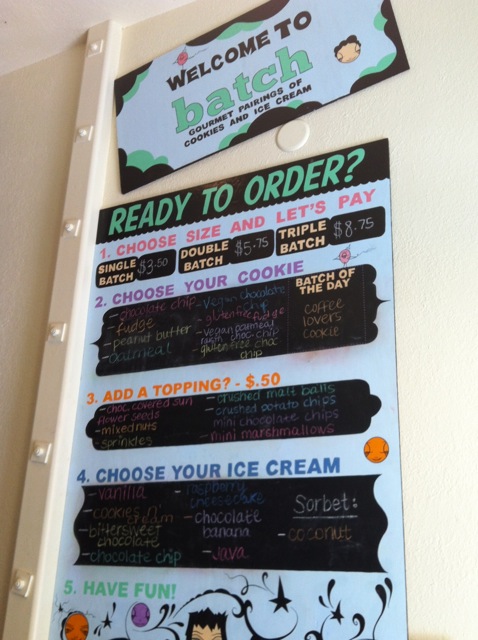 WELCOME TO
batch
GOURMET PAIRINGS OF
COOKIES AND ICE CREAM
READY TO ORDER?
1. CHOOSE SIZE AND LET'S PAY
SINGLE BATCH $3.50
DOUBLE BATCH $5.75
TRIPLE BATCH $8.75
2. CHOOSE YOUR COOKIE
- chocolate chip
- fudge
- peanut butter
- oatmeal
- vegan chocolate
chip
- gluten free fudge
- vegan oatmeal
choc chip
- gluten-free choc
chip
BATCH OF
THE DAY
coffee
lovers
cookie
3. ADD A TOPPING? - $.50
- choc. covered sun
flower seeds
- mixed nuts
- sprinkles
- crushed malt balls
- crushed potato chips
mini chocolate chips
- mini marshmallows
4. CHOOSE YOUR ICE CREAM
- vanilla
- cookies n'
cream
- bittersweet
chocolate
- chocolate chip
- raspberry
cheesecake
- chocolate
banana
- Java
Sorbet:
- coconut
5. HAVE FUN!